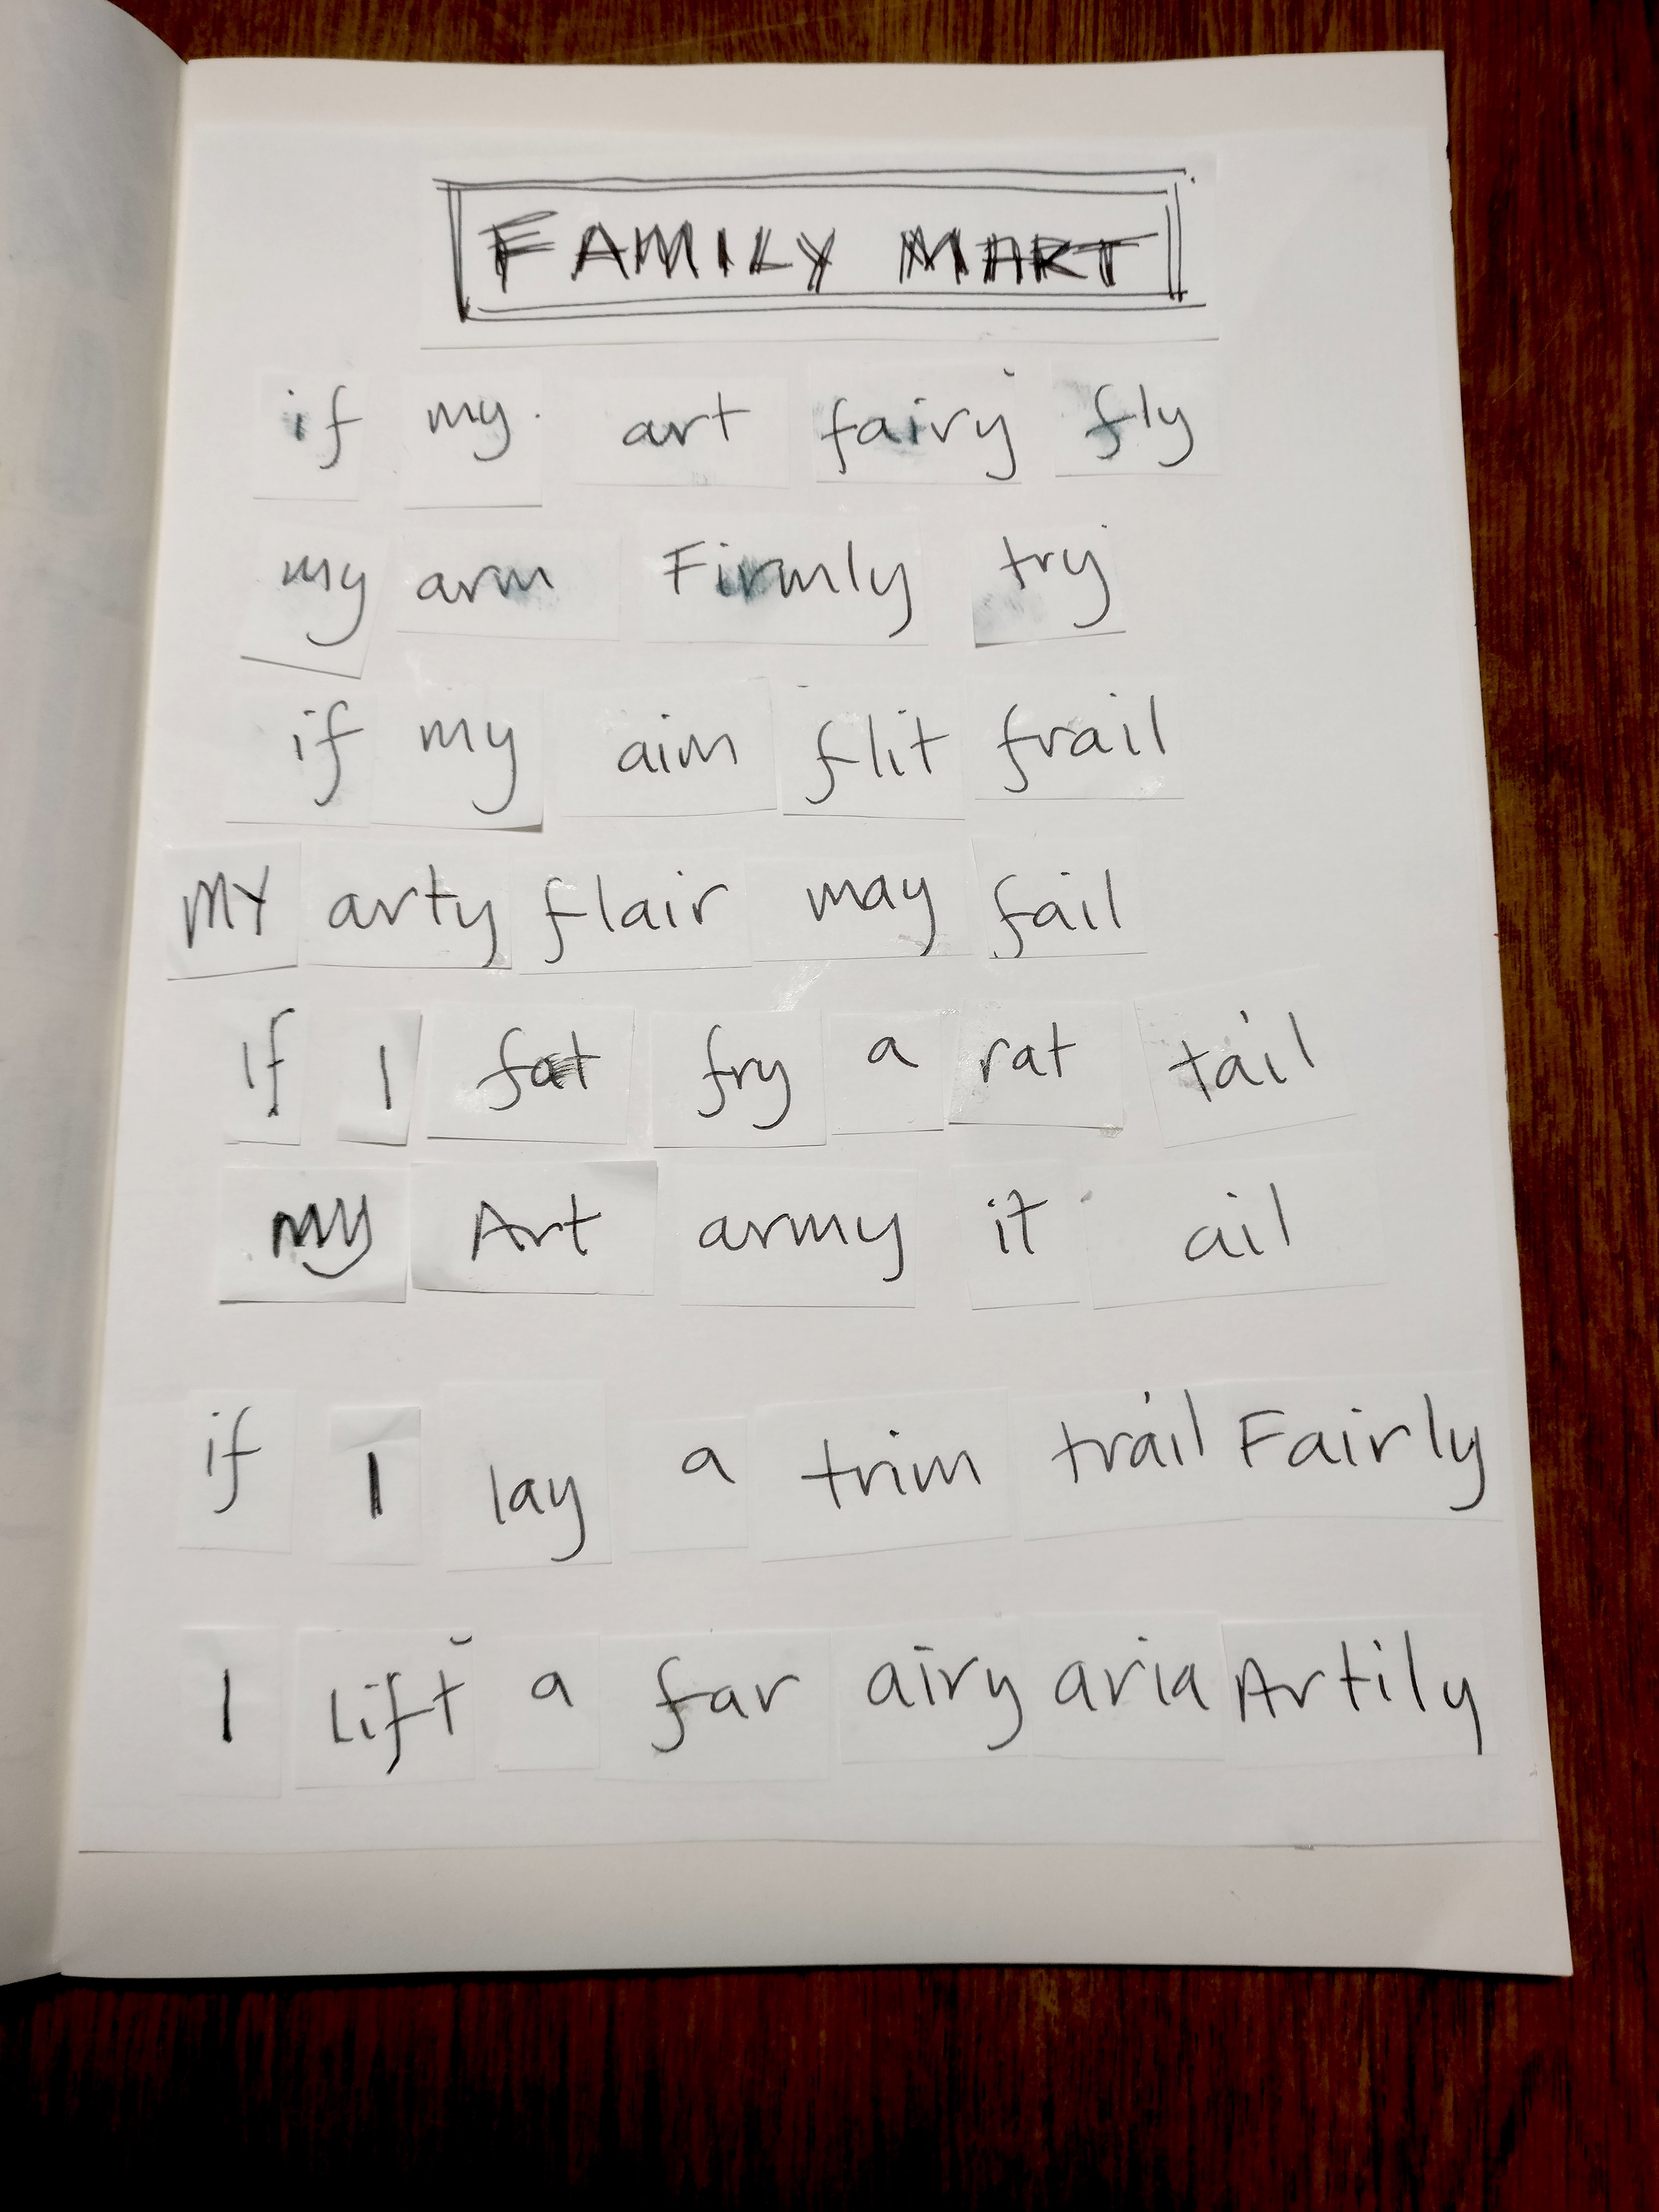 FAMILY MART
if my art fairy fly
my arm Firmly try
if my aim flit frail
MY arty flair may fail
If I fat fry a rat tail
my Art army it ail
if I lay a trim trail Fairly
I Lift a far airy aria Artily